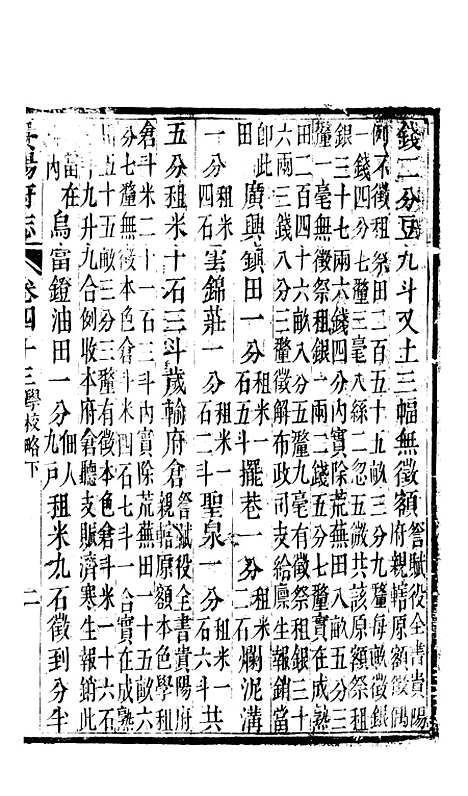 錢二分豆九斗又土三幅無徵額 咨賦役全書貴陽
府親轄原額徵偶
例不徵租祭田二百五十七畝三分九釐每畝徵銀
一錢四分七釐八絲二忽五微共該原額祭租
銀三十七兩六錢四分內實除荒蕪田八畝五分
釐一毫無徵祭租銀一兩二錢五分七釐實在成熟
田二百四十六畝八分五釐九毫有徵祭租銀三十
六兩三錢八分三釐徵解布政司支給廩生報銷當
卽此
田 廣興鎮田一分租米一石五斗擺巷一分租米二石爛泥溝
一分租米四石雲錦莊一分租米一石二斗聖泉一分租米一石六斗共
五分租米十石三斗歲輸府倉 咨賦役全書貴陽府
親轄原額本色學租
倉斗米二十一石三斗內實除荒蕪田一十五畝六
分七釐無徵本色倉斗米四石七斗一合實在成熟
田五十五畝三分三釐有徵本色倉斗米一十六石
九升九合例收本府倉聽支賑濟寒生報銷此
當在
內 烏當鐙油田一分佃人九戶租米九石徵到分半
貴陽府志 卷四十三 學校略下 二